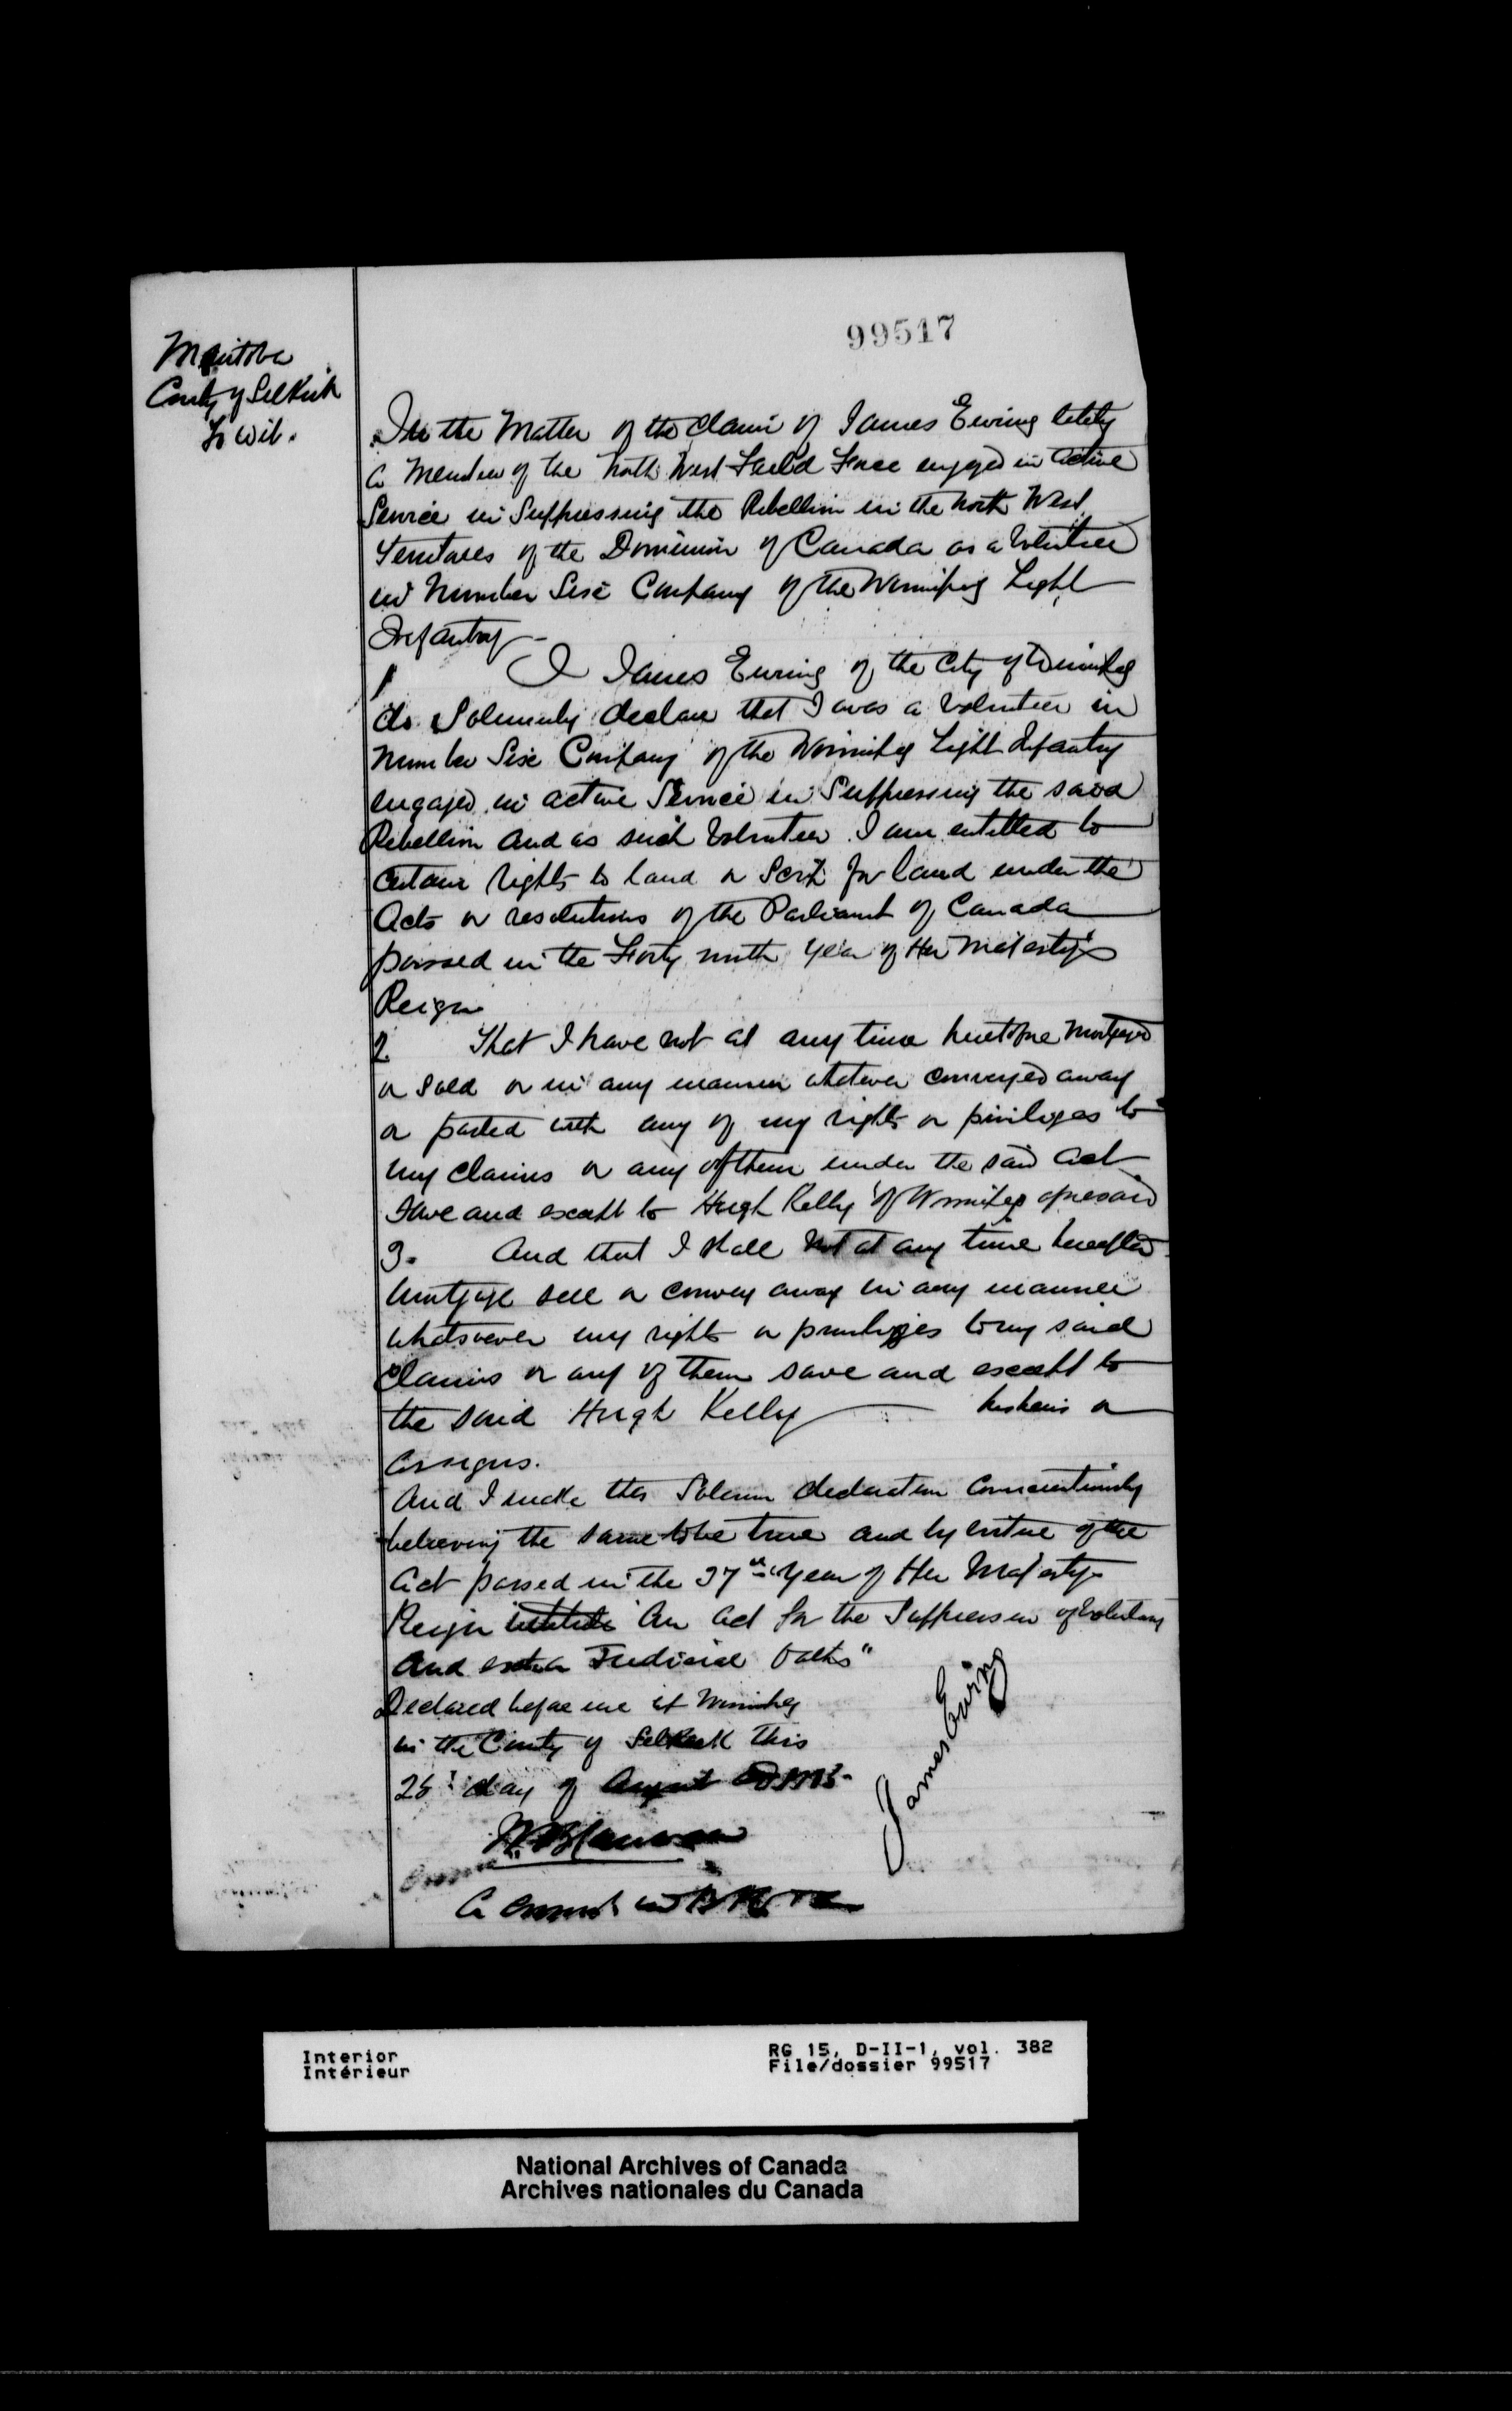 99517
Manitoba
County of Selkirk
To Wit.
In the Matter of the Claim of James Ewing lately
a Member of the North West Field Force engaged in active
Service in Suppressing the Rebellion in the North West
Territories of the Dominion of Canada as a Volunteer
in Number Six Company of the Winnipeg Light
Infantry
1 I James Ewing of the City of Winnipeg
do Solemnly declare that I was a Volunteer in
Number Six Company of the Winnipeg Light Infantry
engaged in active Service in Suppressing the said
Rebellion and as such Volunteer I am entitled to
certain rights to land or Scrip for land under the
Acts or resolutions of the Parliament of Canada
passed in the Forty ninth year of Her Majesty's
Reign
2 That I have not at any time heretofore Mortgaged
or Sold or in any manner whatever conveyed away
or parted with any of my rights or privileges to
my Claims or any of them under the said Act
Save and except to Hugh Kelly of Winnipeg aforesaid
3. And that I shall not at any time hereafter
Mortgage sell or convey away in any manner
whatsoever my rights or privileges to my said
Claims or any of them save and except to
the said Hugh Kelly his heirs or
assigns.
And I make this Solemn declaration Conscientiously
believing the same to be true and by virtue of the
Act passed in the 37th Year of Her Majesty's
Reign intituled An Act for the Suppression of Voluntary
And extra Judicial Oaths"
Declared before me at Winnipeg
in the County of Selkirk this
day of August
James Ewing
A Commr in B R
Interior
Intérieur
RG 15, D-II-1, vol. 382
File/dossier 99517
National Archives of Canada
Archives nationales du Canada